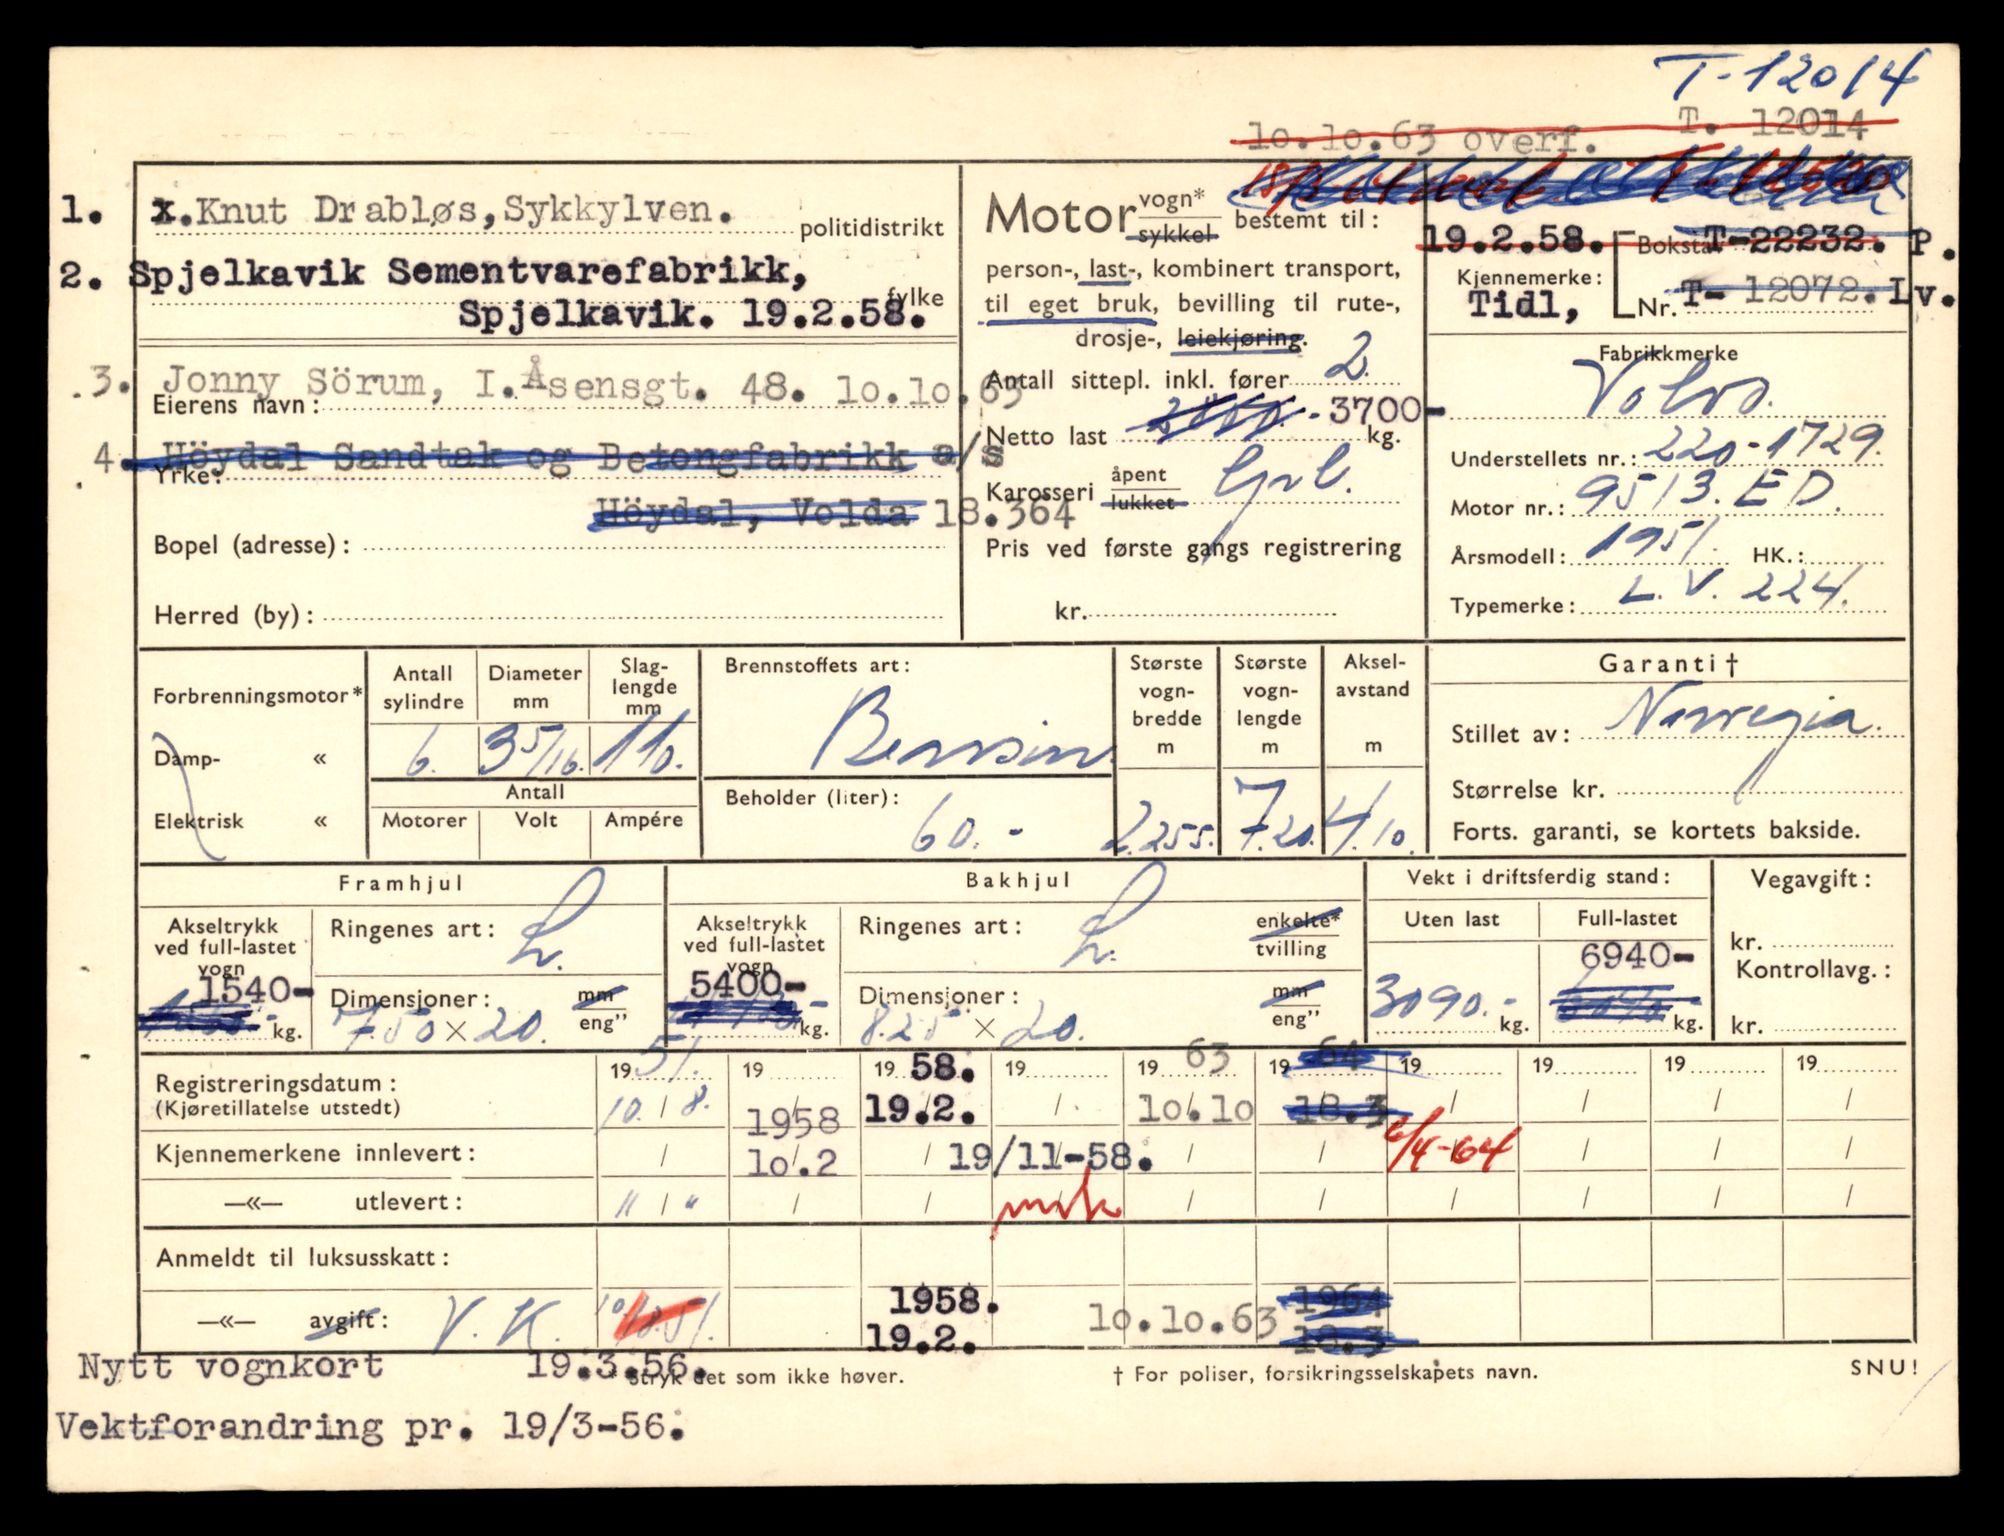 T-12014
10.10.63 overf. T. 12014
1. x.Knut Drabløs, Sykkylven. politidistrikt
2. Spjelkavik Sementvarefabrikk,
fylke
Spjelkavik. 19.2.58.
3. Jonny Sörum, I.Åsensgt. 48. 10.10.63
Eierens navn:
4. Höydal Sandtak og Betongfabrikk a/s
Yrke:
Höydal, Volda 18.364
Bopel (adresse):
Herred (by):
Motor vogn* sykkel bestemt til:
person-, last-, kombinert transport,
til eget bruk, bevilling til rute-,
drosje-, leiekjøring.
Antall sittepl. inkl. fører 2
Netto last 3700- kg.
Karosseri åpent lukket
Pris ved første gangs registrering
kr.
19.2.58. Bokstav T-22232. P.
Kjennemerke:
Tidl, Nr. T- 12072. Lv.
Fabrikkmerke
Volvo.
Understellets nr.: 220-1729.
Motor nr.: 9513. ED.
Årsmodell: 1951. HK.:
Typemerke: L.V. 224.
Forbrenningsmotor*
Damp- «
Elektrisk «
Antall sylindre
6.
Diameter mm
3 5/16.
Slag-lengde mm
110.
Antall
Motorer Volt Ampére
Brennstoffets art:
Bensin.
Beholder (liter):
60.-
Største vogn-bredde m
2.255.
Største vogn-lengde m
7.20.
Aksel-avstand m
4.10.
Garanti †
Stillet av: Norvegia.
Størrelse kr.
Forts. garanti, se kortets bakside.
Framhjul
Akseltrykk ved full-lastet vogn
1540-
kg.
Ringenes art: L.
Dimensjoner: mm eng"
7.50 × 20.
Bakhjul
Akseltrykk ved full-lastet vogn
5400-
kg.
Ringenes art: L. enkelte* tvilling
Dimensjoner: mm eng"
8.25 × 20.
Vekt i driftsferdig stand:
Uten last Full-lastet
6940-
3090.- kg. kg.
Vegavgift:
kr.
Kontrollavg.:
kr.
Registreringsdatum: 19 51. 19 19 58. 19 19 63 19 64 19 19 19 19
(Kjøretillatelse utstedt) 10. / 8. 19.2. 10.10 18.3
1958
Kjennemerkene innlevert: 10.2 19/11-58. 6/4-64
—«— utlevert: " / "
Anmeldt til luksusskatt:
1958. 1964
—«— avgift: V.K. 10/8.51. 19.2. 10.10.63 18.3
Nytt vognkort 19.3.56.
* Stryk det som ikke høver. † For poliser, forsikringsselskapets navn. SNU!
Vektforandring pr. 19/3-56.